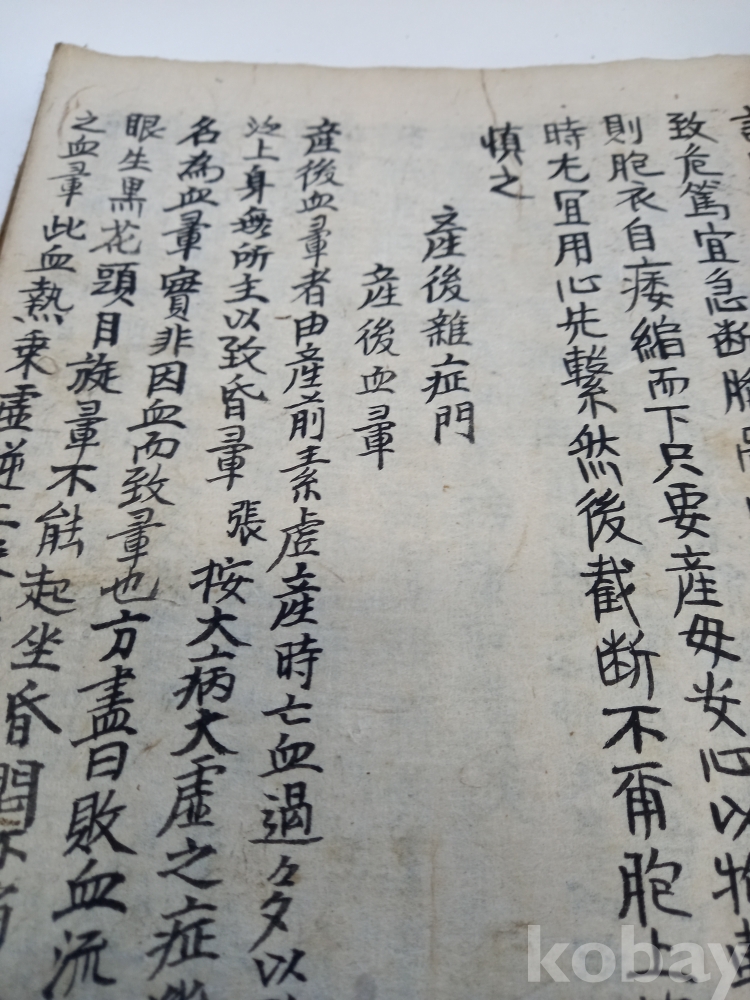 致危篤宜急断臍
則胞衣自痿縮而下只要産母安心以物
時尤宜用心先繫然後截断不甭胞上
慎之
産後雜症門
産後血暈
産後血暈者由産前素虚産時亡血過々夕以
上身無所主以致昏暈 張 按大病大虛之症
名為血暈實非因血而致暈也方盡曰敗血流
眼生黒花頭目旋暈不能起坐昏悶不省
之血暈此血熱乗虛逆上
kobay